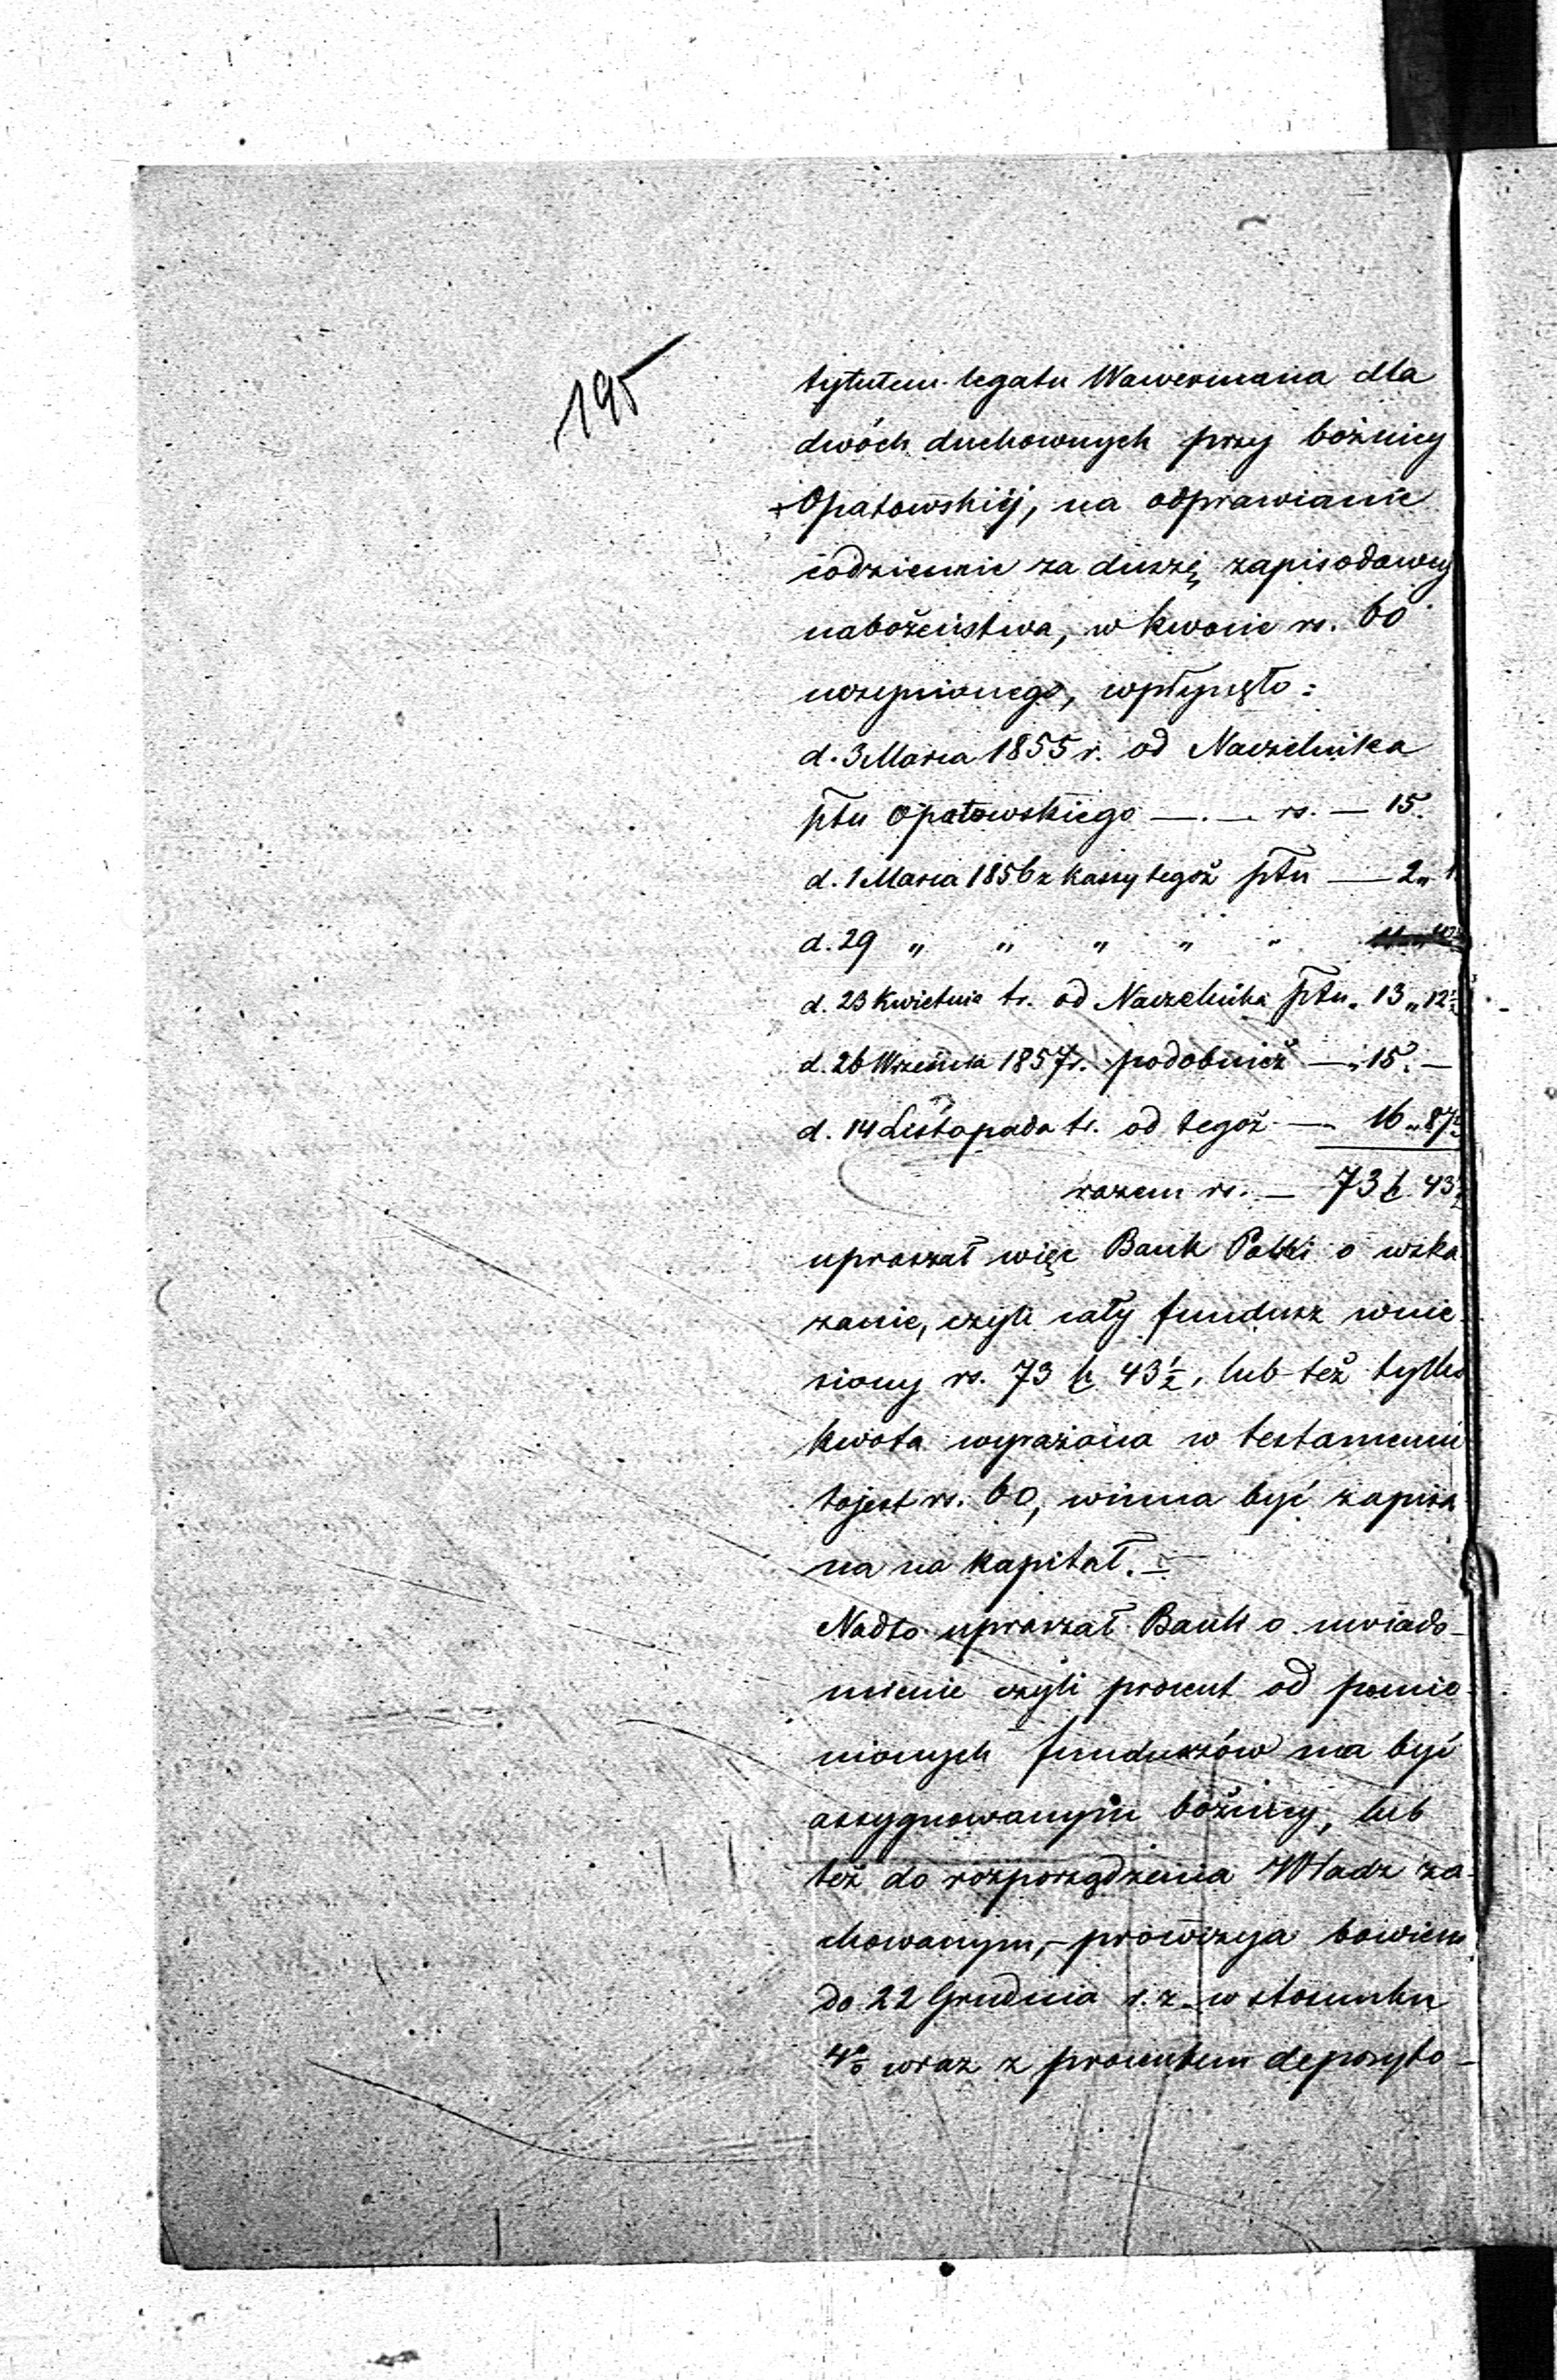 195
tytułem legatu Wawermana dla
dwóch duchownych przy bożnicy
Opatowskiéj, na odprawianie
codziennie za duszę zapisodawcy
nabożeństwa, w kwocie rs. 60
uczynionego, wpłynęło:
d. 3 Marca 1855 r. od Naczelnika
Ptu Opatowskiego —.— rs. — 15.
d. 1 Marca 1856 z kassy tegoż Ptu — 2 „
d. 29 „ „ „ „ „
d. 23 Kwietnia t.r. od Naczelnika Ptu „ 13 „ 12½
d. 26 Września 1857 r. podobnież — „ 15. —
d. 14 Listopada t.r. od tegoż — 16 „ 87½
razem rs. — 73 k 43½
upraszał więc Bank Polski o wska
zanie, czyli cały fundusz wnie
siony rs. 73 k 43½, lub też tylko
kwota wyrażona w testamencie
tojest rs. 60, winna być zapisa
na na kapitał. —
Nadto upraszał Bank o uwiado-
mienie czyli procent od pomie
nionych funduszów ma być
assygnowanym bożnicy, lub
też do rozporządzenia Władz za-
chowanym, — prowizya bowiem
do 22 Grudnia r. z. w stosunku
4% wraz z procentem depozyto-